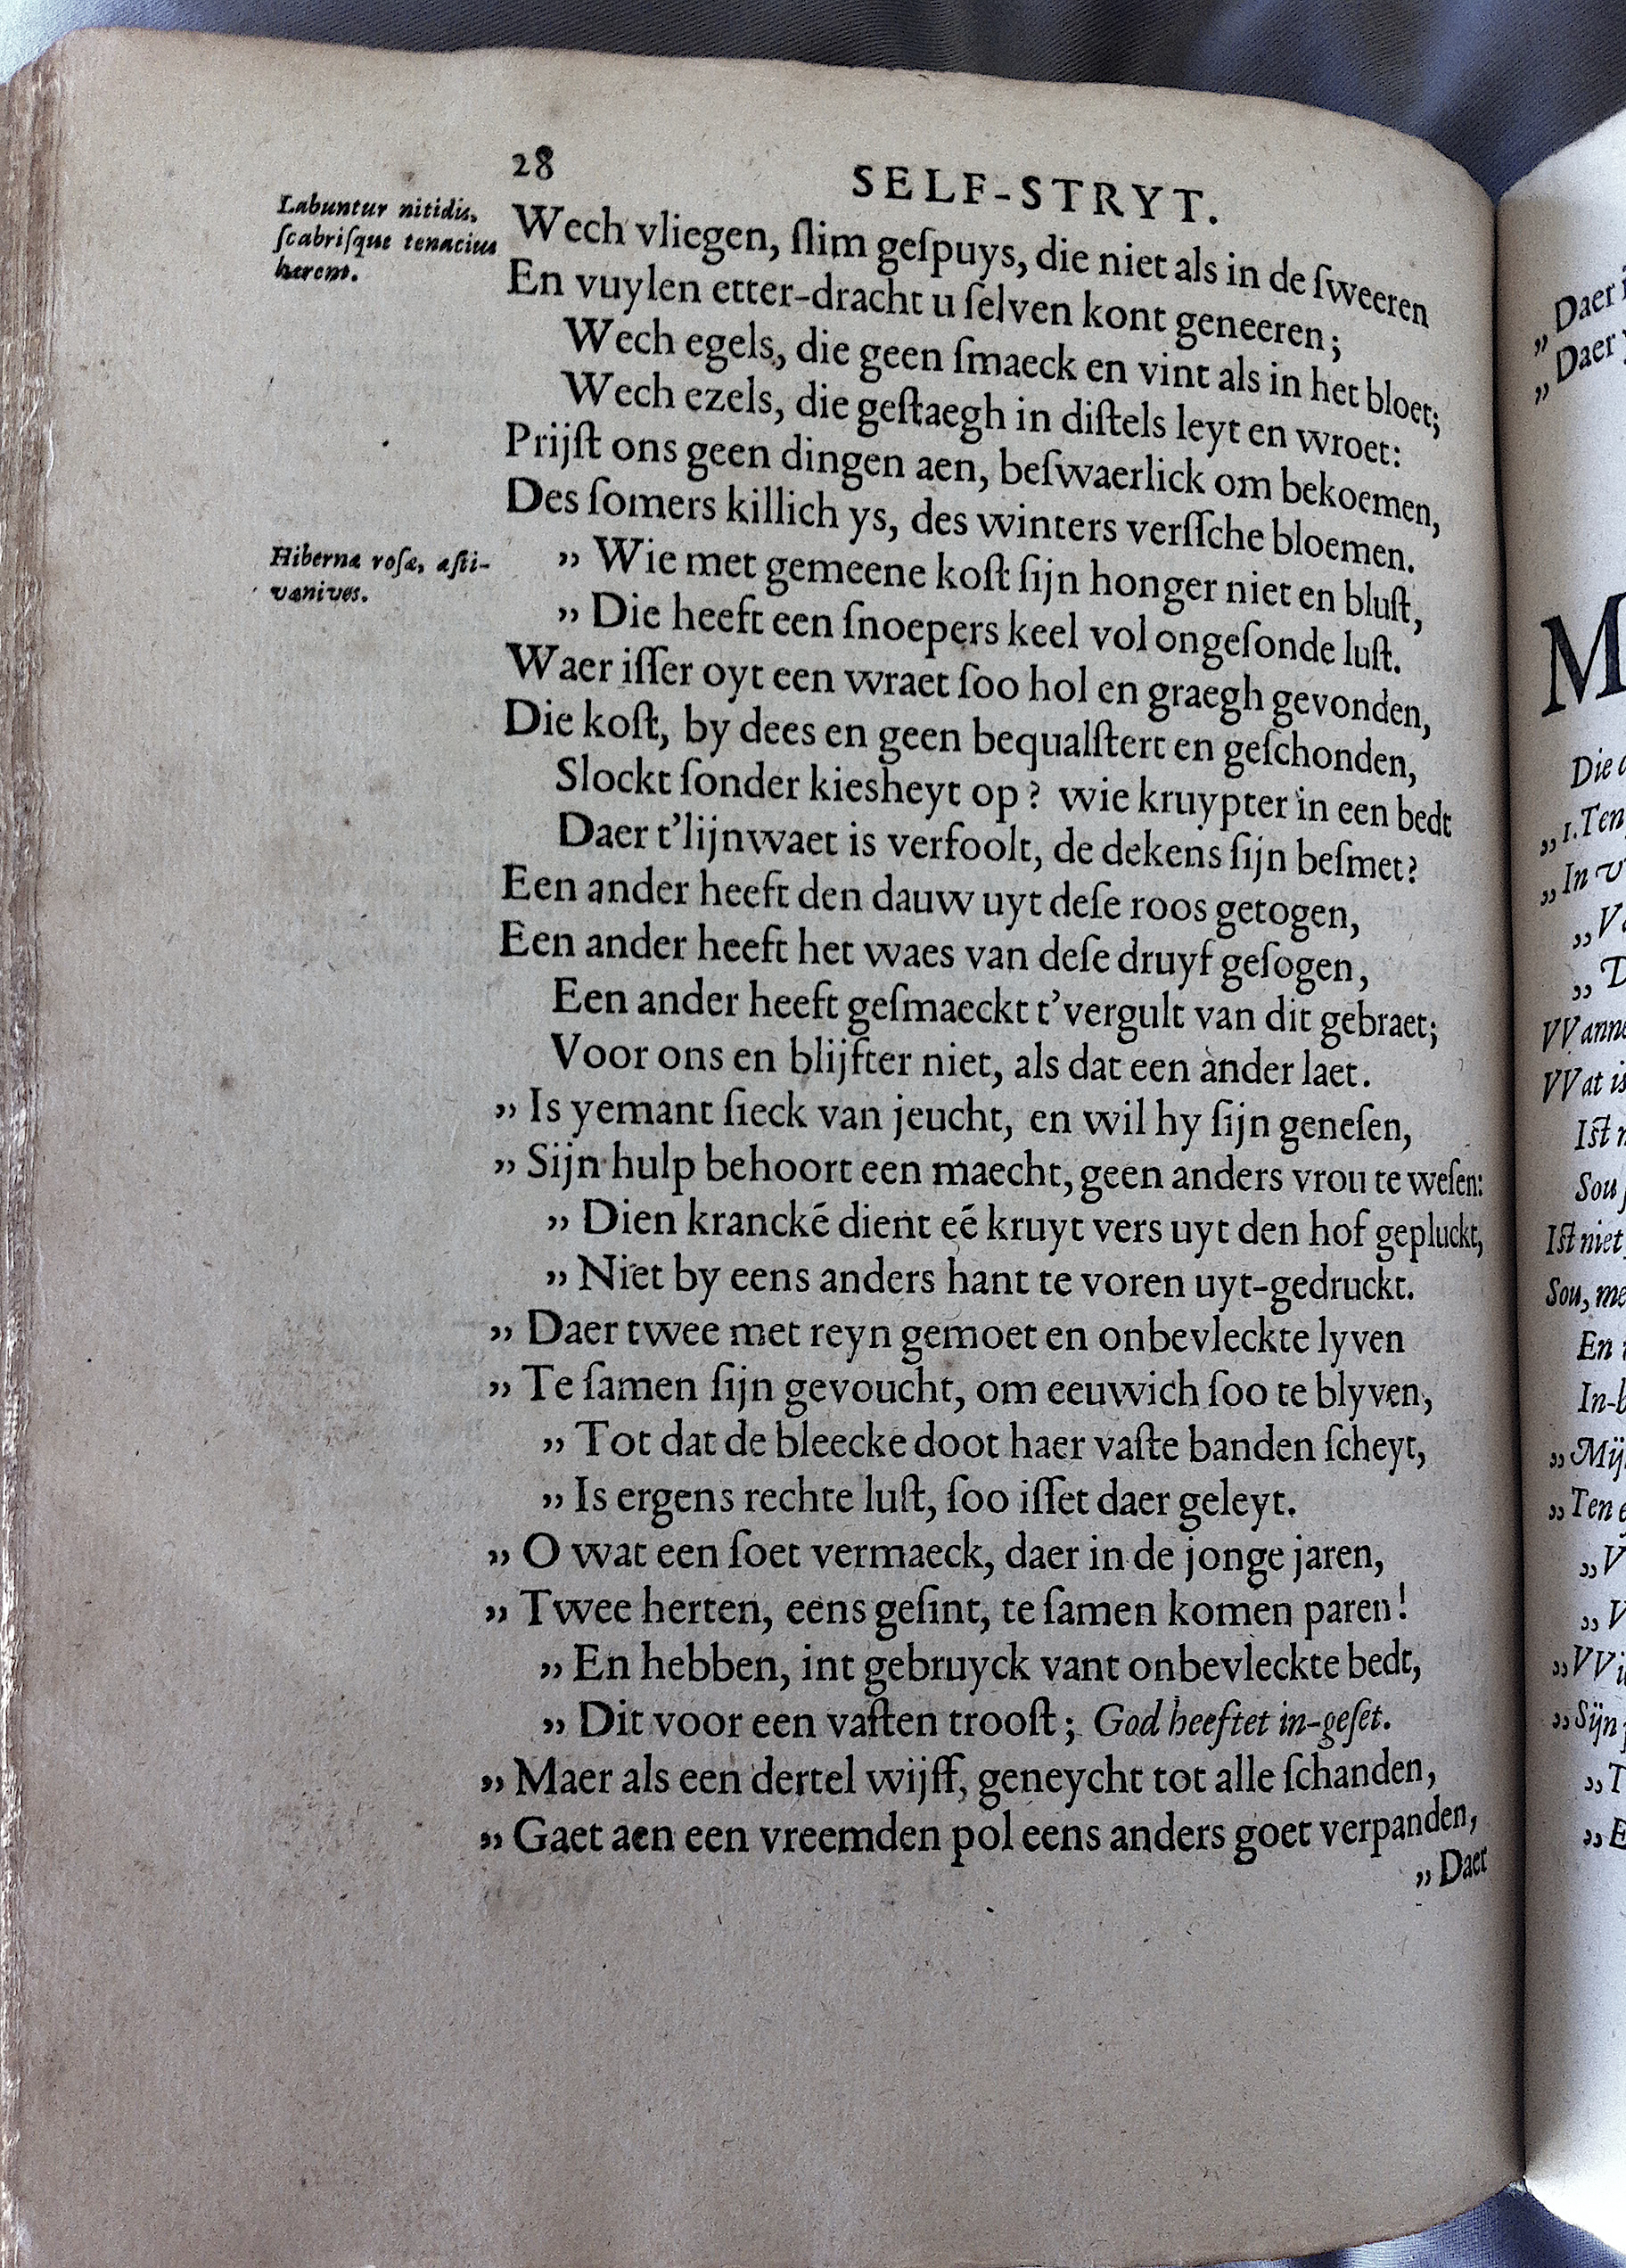 28
SELF-STRYT.
Labuntur nitidis,
ſcabriſque tenacius
herent.
Wech vliegen, ſlim geſpuys, die niet als in de ſweeren
En vuylen etter-dracht u ſelven kont geneeren;
Wech egels, die geen ſmaeck en vint als in het bloet;
Wech ezels, die geſtaegh in diſtels leyt en wroet:
Prijſt ons geen dingen aen, beſwaerlick om bekoemen,
Des ſomers killich ys, des winters verſſche bloemen.
Hiberna roſæ, æſti-
vanives.
„ Wie met gemeene koſt ſijn honger niet en bluſt,
„ Die heeft een ſnoepers keel vol ongeſonde luſt.
Waer iſſer oyt een wraet ſoo hol en graegh gevonden,
Die koſt, by dees en geen bequalſtert en geſchonden,
Slockt ſonder kiesheyt op? wie kruypter in een bedt
Daer t'lijnwaet is verfoolt, de dekens ſijn beſmet?
Een ander heeft den dauw uyt deſe roos getogen,
Een ander heeft het waes van deſe druyf geſogen,
Een ander heeft geſmaeckt t'vergult van dit gebraet;
Voor ons en blijfter niet, als dat een ander laet.
„ Is yemant ſieck van jeucht, en wil hy ſijn geneſen,
„ Sijn hulp behoort een maecht, geen anders vrou te weſen:
„ Dien kranckē dient eē kruyt vers uyt den hof gepluckt,
„ Niet by eens anders hant te voren uyt-gedruckt.
„ Daer twee met reyn gemoet en onbevleckte lyven
„ Te ſamen ſijn gevoucht, om eeuwich ſoo te blyven,
„ Tot dat de bleecke doot haer vaſte banden ſcheyt,
„ Is ergens rechte luſt, ſoo iſſet daer geleyt.
„ O wat een ſoet vermaeck, daer in de jonge jaren,
„ Twee herten, eens geſint, te ſamen komen paren!
„ En hebben, int gebruyck vant onbevleckte bedt,
„ Dit voor een vaſten trooſt; God heeftet in-geſet.
„ Maer als een dertel wijff, geneycht tot alle ſchanden,
„ Gaet aen een vreemden pol eens anders goet verpanden,
„ Daer
„ Daer
„ Daer
M
Die
„ 1. Ten
„ In
VVann
VVat is
Iſt
Sou
Iſt niet
Sou, me
En
In-b
„ Mij
„ Ten
„ V
„ V
„ VVi
„ Sijn
„ T
„ E